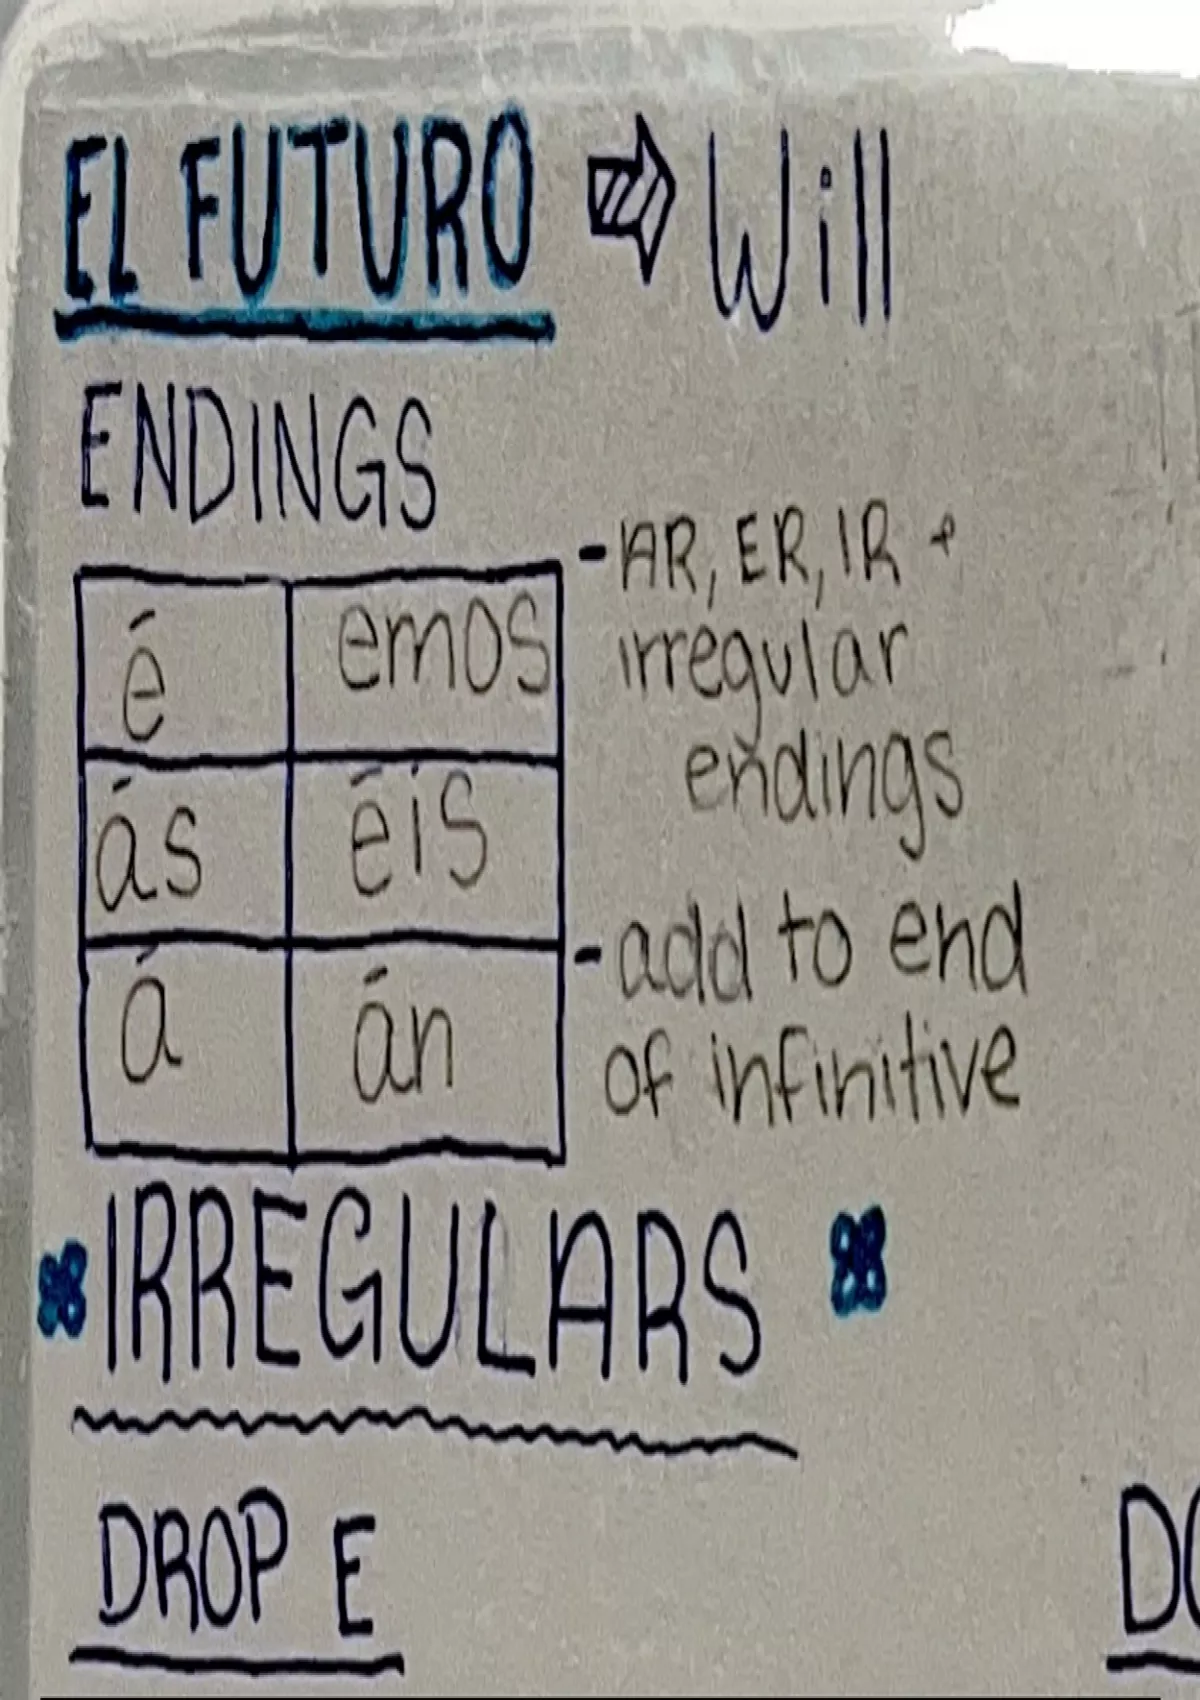 EL FUTURO ⇨ Will
ENDINGS
é emos
ás éis
á án
-AR, ER, IR +
irregular
endings
-add to end
of infinitive
IRREGULARS
DROP E